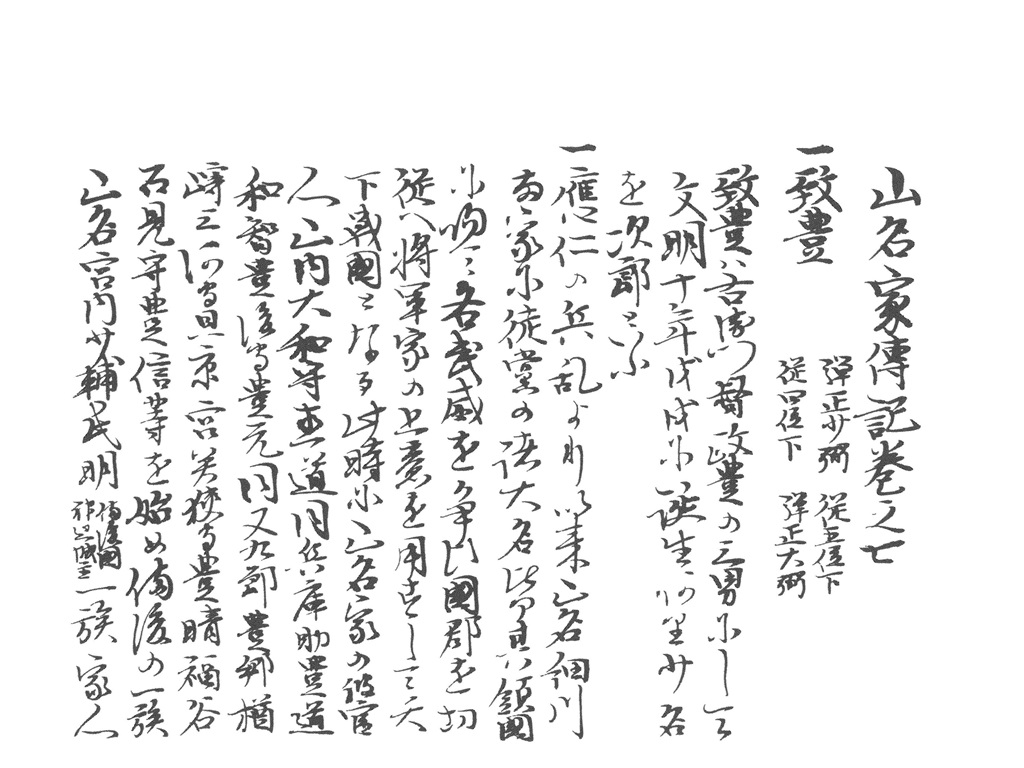 山名家傳記巻之七
一致豊
弾正少弼 従五位下
従四位下 弾正大弼
致豊ハ右衛門督政豊の三男にして
文明十年戊戌に誕生 少名
を次郎と云
一應仁の兵乱より以来山名細川
両家に徒黨の諸大名皆其領國
に帰て各武威を争ひ國郡を切
従へ将軍家の上意を用すして天
下戦國となる此時に山名家の被官
人山内大和守直道同兵庫助豊道
和智豊後守豊元同又九郎豊郷楢
崎三河守豊景宮若狭守豊晴福谷
石見守豊信等を始め備後の一族
山名宮内少輔氏明備後國神辺城主一族家人